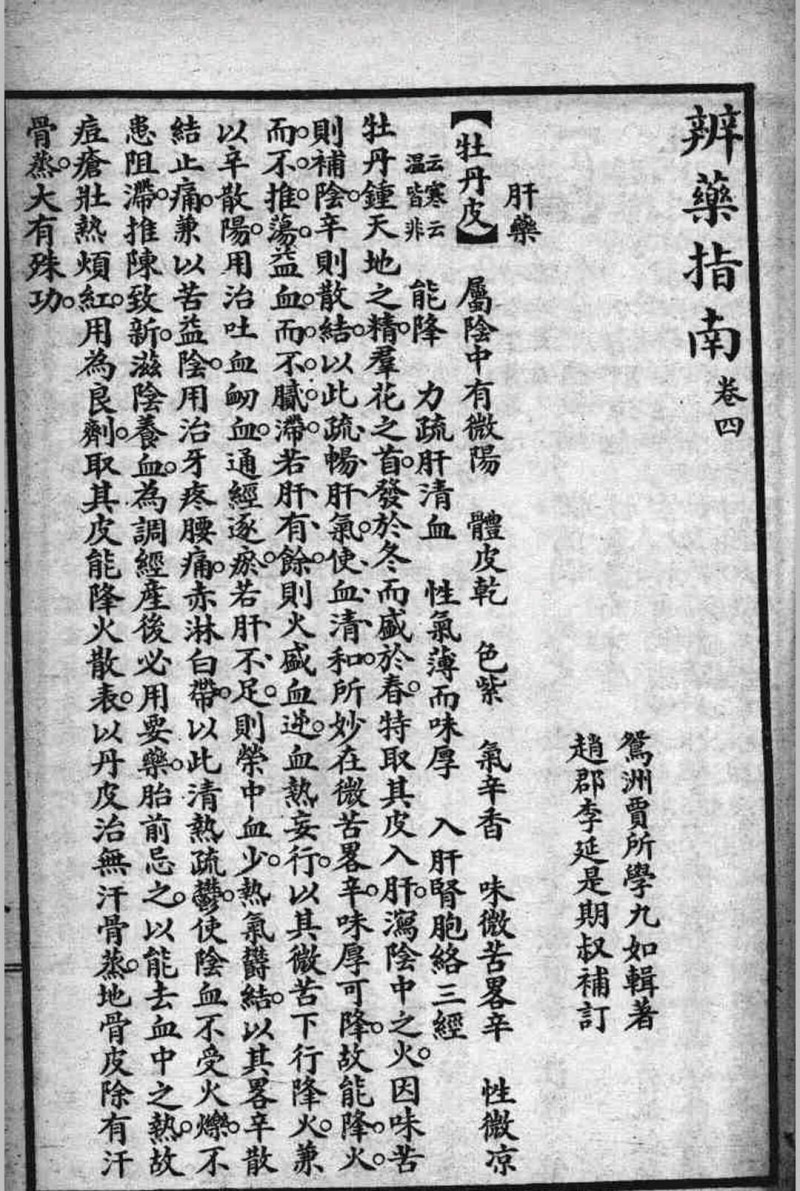 辨藥指南 卷四
鴛洲賈所學九如輯著
趙郡李延是期叔補訂
肝藥
【牡丹皮】 屬陰中有微陽 體皮乾 色紫 氣辛香 味微苦畧辛 性微凉
云寒云
溫皆非 能降 力疏肝清血 性氣薄而味厚 入肝腎胞絡三經
牡丹鍾天地之精。羣花之首。發於冬而盛於春。特取其皮入肝。瀉陰中之火。因味苦
則補陰。辛則散結。以此疏暢肝氣。使血清和。所妙在微苦畧辛。味厚可降。故能降火
而不推蕩。益血而不膩滯。若肝有餘。則火盛血逆。血熱妄行。以其微苦下行降火。兼
以辛散陽。用治吐血衂血。通經逐瘀。若肝不足。則榮中血少。熱氣欝結。以其畧辛散
結止痛。兼以苦益陰。用治牙疼腰痛。赤淋白帶。以此清熱疏鬱。使陰血不受火爍。不
患阻滯。推陳致新。滋陰養血。為調經産後必用要藥。胎前忌之。以能去血中之熱。故
痘瘡壯熱煩紅。用為良劑。取其皮能降火散表。以丹皮治無汗骨蒸。地骨皮除有汗
骨蒸。大有殊功。